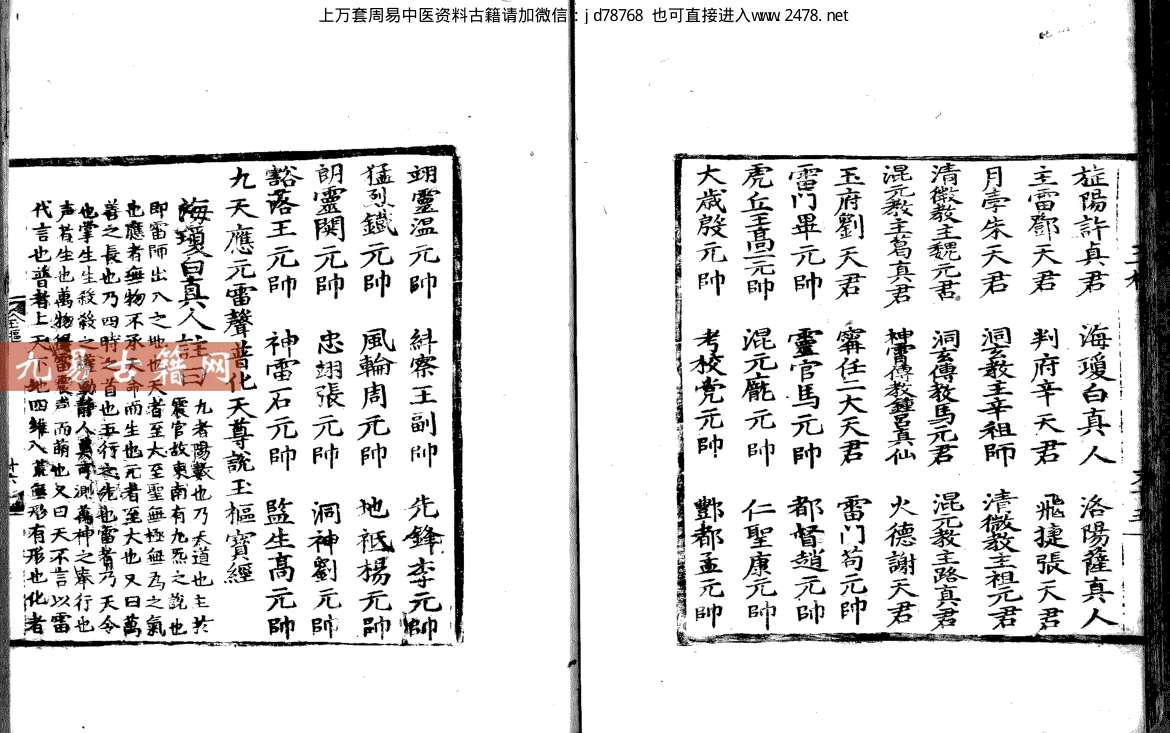 上万套周易中医资料古籍请加微信：jd78768 也可直接进入www.2478.net
旌陽許真君 海瓊白真人 洛陽薩真人
主雷鄧天君 判府辛天君 飛捷張天君
月孛朱天君 洞玄教主辛祖師 清微教主祖元君
清微教主魏元君 洞玄傳教馬元君 混元教主路真君
混元教主葛真君 神霄傳教鍾呂真仙 火德謝天君
玉府劉天君 寗任二大天君 雷门苟元帥
雷门畢元帥 靈官馬元帥 都督趙元帥
虎丘王高二元帥 混元龐元帥 仁聖康元帥
大歲殷元帥 考校党元帥 酆都孟元帥
翊靈温元帥 糾察王副帥 先鋒李元帥
猛烈鐵元帥 風輪周元帥 地祗楊元帥
朗靈関元帥 忠翊張元帥 洞神劉元帥
豁落王元帥 神雷石元帥 監生高元帥
九天應元雷聲普化天尊說玉樞寶經
海瓊白真人註曰 九者陽數也乃天道也主於
震宫故東南有九炁之說也
即雷師出入之地也天者至大至聖無極無為之氣
也應者無物不承天命而生也元者至大也又曰萬
善之長也乃四時之首也五行之先也雷者乃天令
也掌生生殺殺之權動靜人莫可測萬神之奉行也
声者生也萬物得雷聲而萌也又曰天不言以雷
代言也普者上天下地四維八荒無形有形也化者
九易古籍网